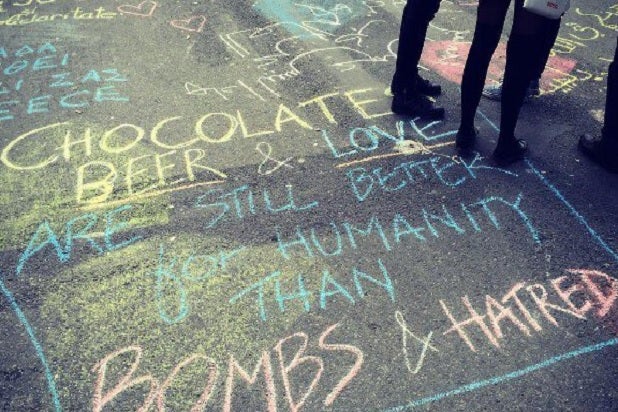 CHOCOLATE
BEER & LOVE
ARE STILL BETTER
for HUMANITY
THAN
BOMBS & HATRED